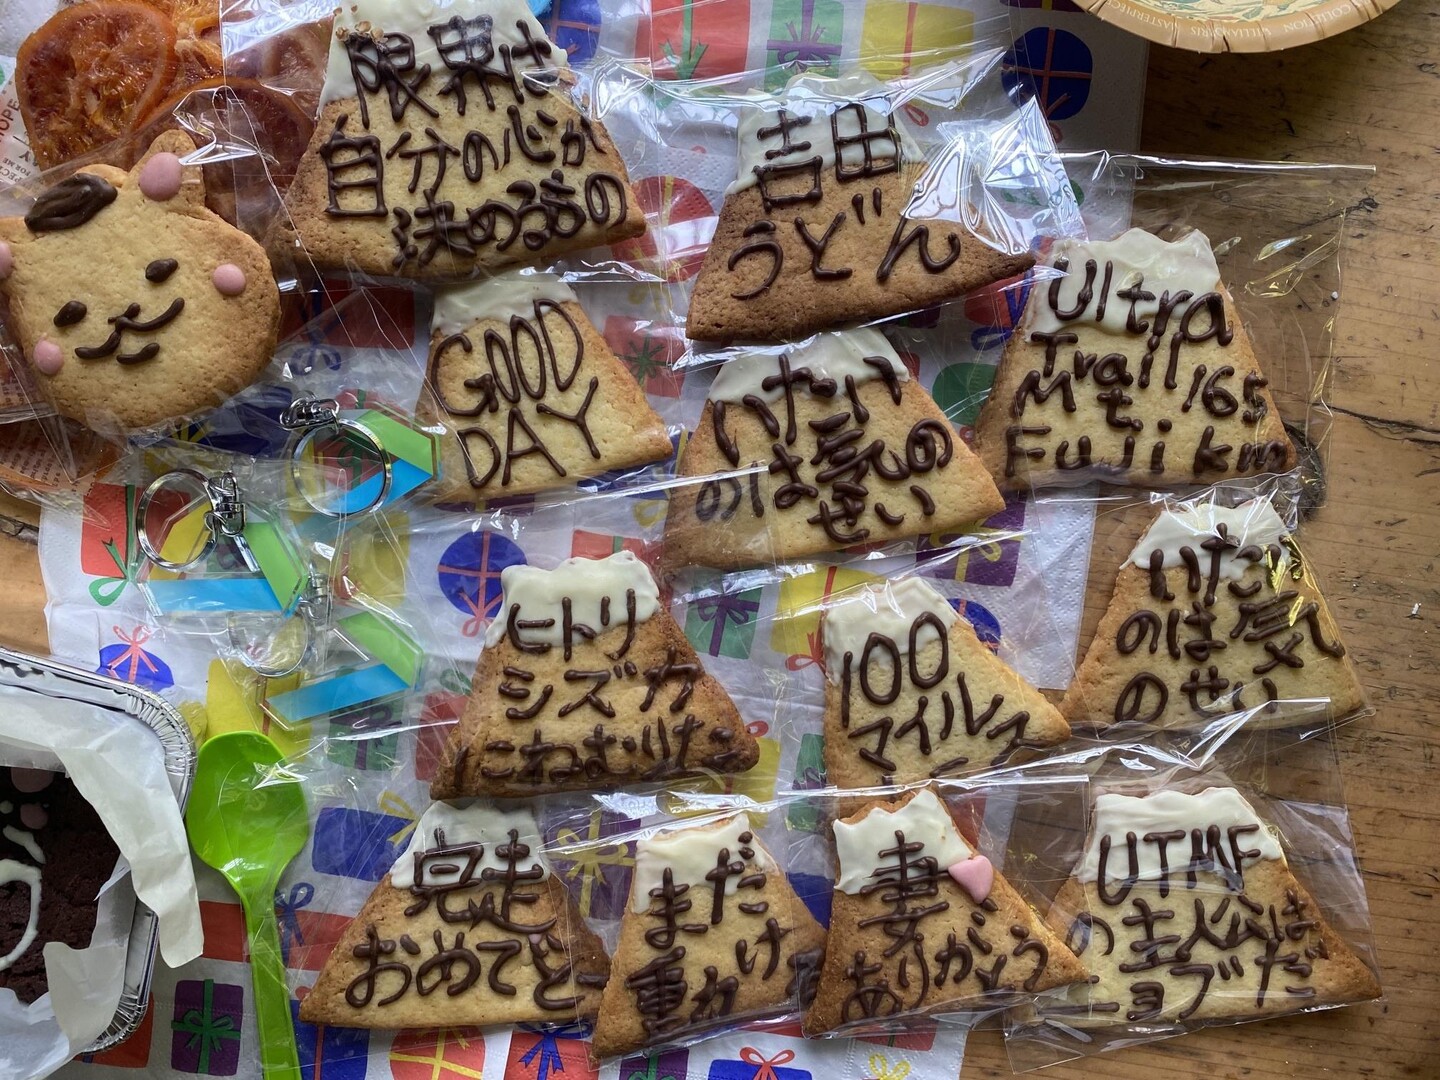 限界は
自分の心が
決めるもの
吉田
うどん
GOOD
DAY
いたい
のは気の
せい
Ultra
Trail
Mt 165
Fuji km
いたい
のは気
のせい
ヒトリ
シズカ
にねむりた
100
マイルス
完走
おめでとー
まだ
け
重ね
妻
ありがとう
UTMF
の主人公は
ニョブだ